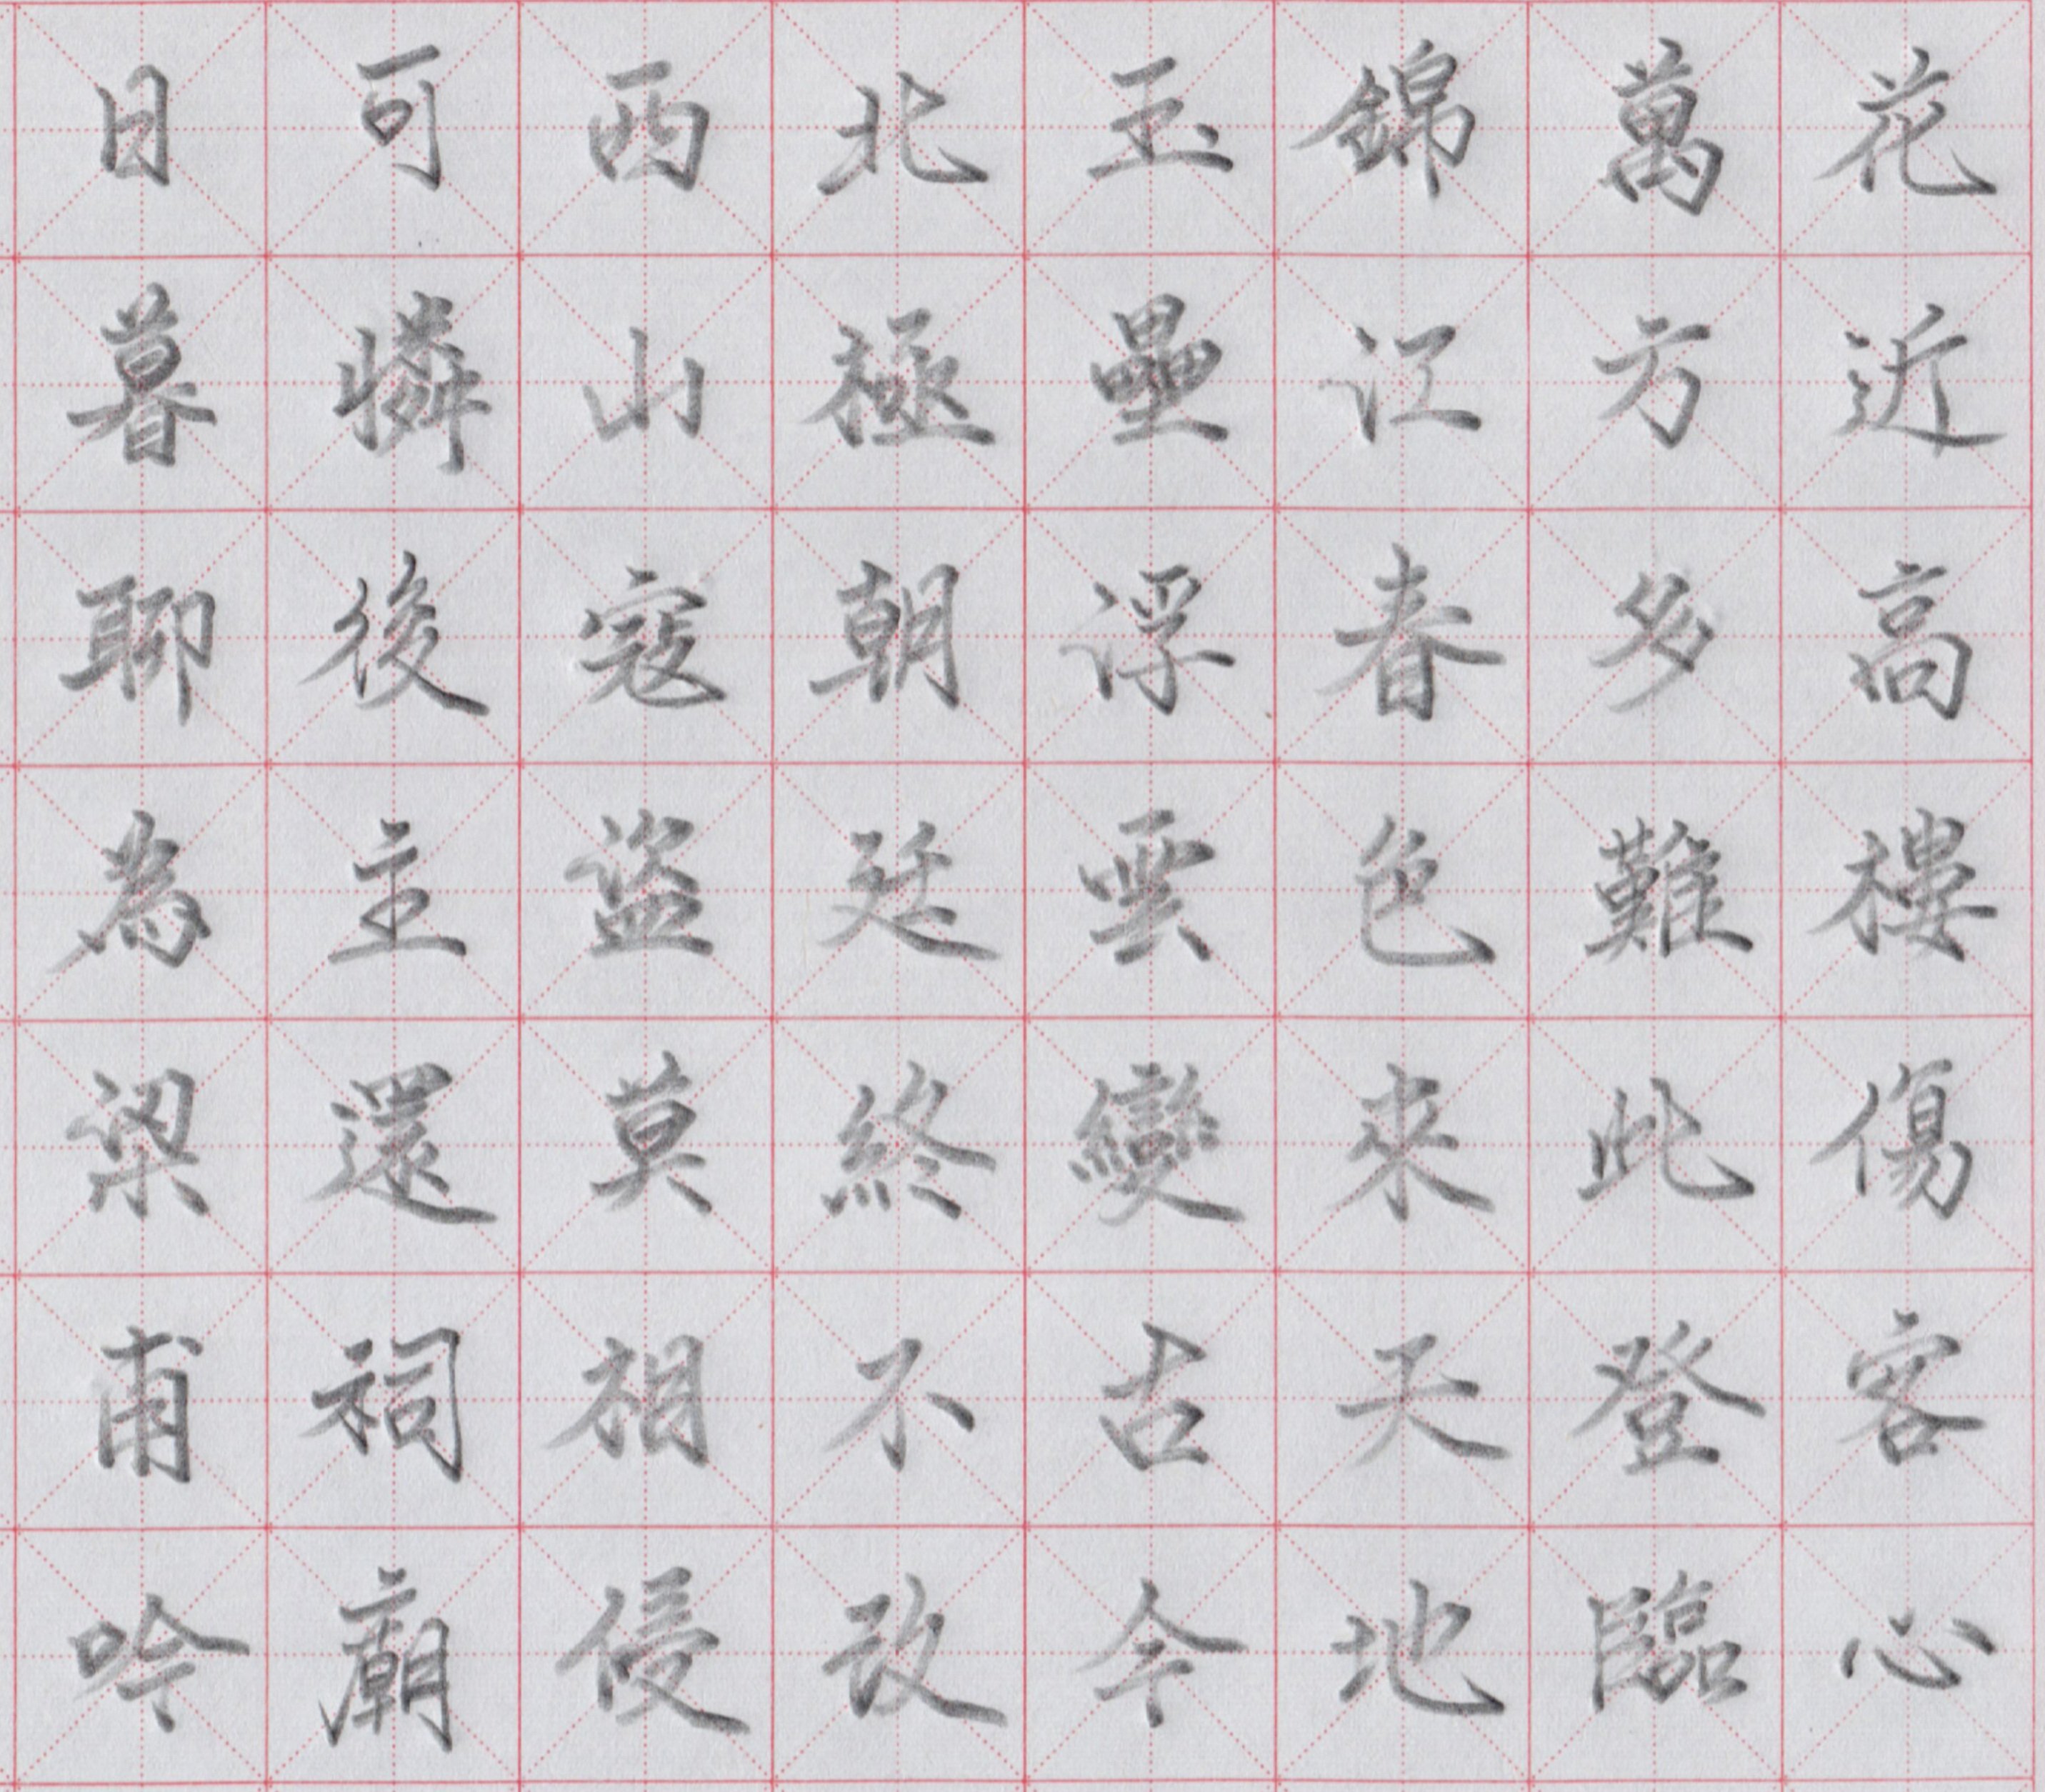 花近高樓傷客心
萬方多難此登臨
錦江春色來天地
玉壘浮雲變古今
北極朝廷終不改
西山寇盜莫相侵
可憐後主還祠廟
日暮聊為梁甫吟